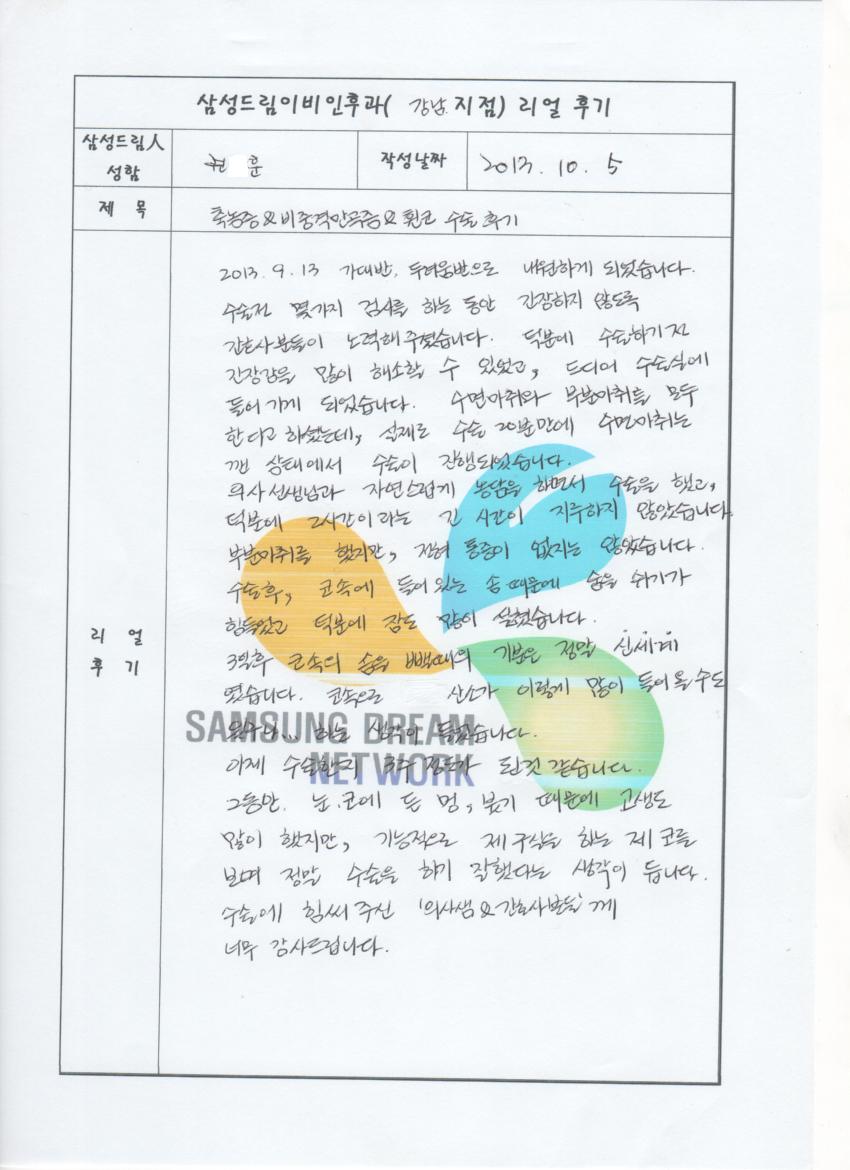 삼성드림이비인후과( 강남 지점) 리얼 후기
삼성드림人
성함
훈
작성날짜
2013. 10. 5
제 목
축농증 & 비중격만곡증 & 휜코 수술 후기
리 얼
후 기
2013. 9. 13 기대반, 두려움반으로 내원하게 되었습니다.
수술전 몇가지 검사를 하는 동안 긴장하지 않도록
간호사분들이 노력해주셨습니다. 덕분에 수술하기 전
긴장감을 많이 해소할 수 있었고, 드디어 수술실에
들어가게 되었습니다. 수면마취와 부분마취를 모두
한다고 하셨는데, 실제로 수술 20분만에 수면마취는
깬 상태에서 수술이 진행되었습니다.
의사선생님과 자연스럽게 농담을 하면서 수술을 했고,
덕분에 2시간이라는 긴 시간이 지루하지 않았습니다.
부분마취를 했지만, 전혀 통증이 없지는 않았습니다.
수술후, 코속에 들어있는 솜 때문에 숨을 쉬기가
힘들었고 덕분에 잠도 많이 설쳤습니다.
3일후 코속의 솜을 뺐을때의 기분은 정말 신.세.계
였습니다. 코속으로 산소가 이렇게 많이 들어올 수도
있구나... 하는 생각이 들었습니다.
SAMSUNG DREAM
NETWORK
이제 수술한지 3주 정도가 된것 같습니다.
그동안. 눈.코에 든 멍, 붓기 때문에 고생도
많이 했지만, 기능적으로 제 구실을 하는 제 코를
보며 정말 수술을 하기 잘했다는 생각이 듭니다.
수술에 힘써 주신 '의사샘 & 간호사분들' 께
너무 감사드립니다.